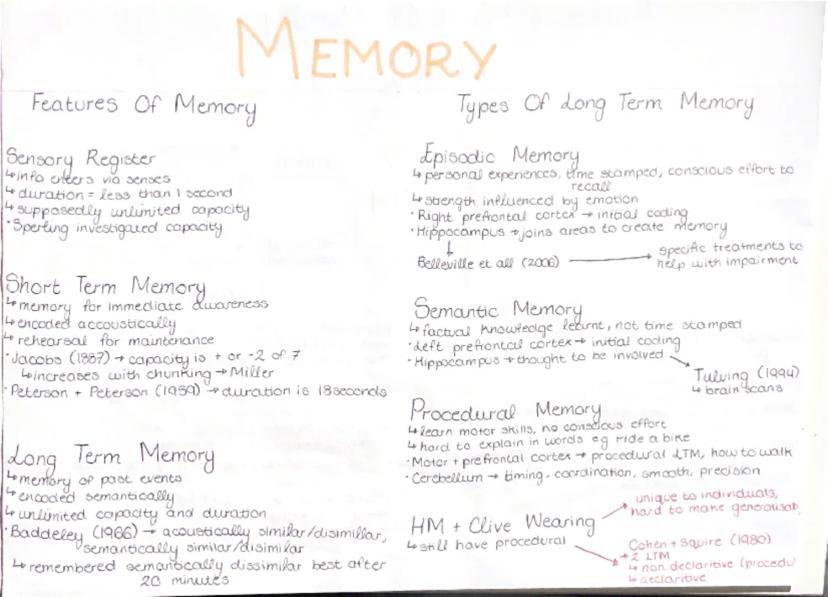 MEMORY
Features Of Memory
Sensory Register
↳ info enters via senses
↳ duration = less than 1 second
↳ supposedly unlimited capacity
· Sperling investigated capacity
Short Term Memory
↳ memory for immediate awareness
↳ encoded accoustically
↳ rehearsal for maintenance
· Jacobs (1887) → capacity is + or -2 of 7
↳ increases with chunking → Miller
· Peterson + Peterson (1959) → duration is 18 seconds
Long Term Memory
↳ memory of past events
↳ encoded semantically
↳ unlimited capacity and duration
· Baddeley (1966) → acoustically similar/disimillar,
semantically similar/disimilar
↳ remembered semantically dissimilar best after
20 minutes
Types Of Long Term Memory
Episodic Memory
↳ personal experiences, time stamped, conscious effort to
recall
↳ strength influenced by emotion
· Right prefrontal cortex → initial coding
· Hippocampus → joins areas to create memory
↓
Belleville et all (2006) → specific treatments to
help with impairment
Semantic Memory
↳ factual knowledge learnt, not time stamped
· Left prefrontal cortex → initial coding
· Hippocampus → thought to be involved
Tulving (1994)
↳ brain scans
Procedural Memory
↳ learn motor skills, no conscious effort
↳ hard to explain in words eg ride a bike
· Motor + prefrontal cortex → procedural LTM, how to walk
· Cerebellum → timing, coordination, smooth, precision
HM + Clive Wearing → unique to individuals,
hard to make generalisat
↳ still have procedural
Cohen + Squire (1980)
→ 2 LTM
↳ non declaritive (procedu
↳ declaritive